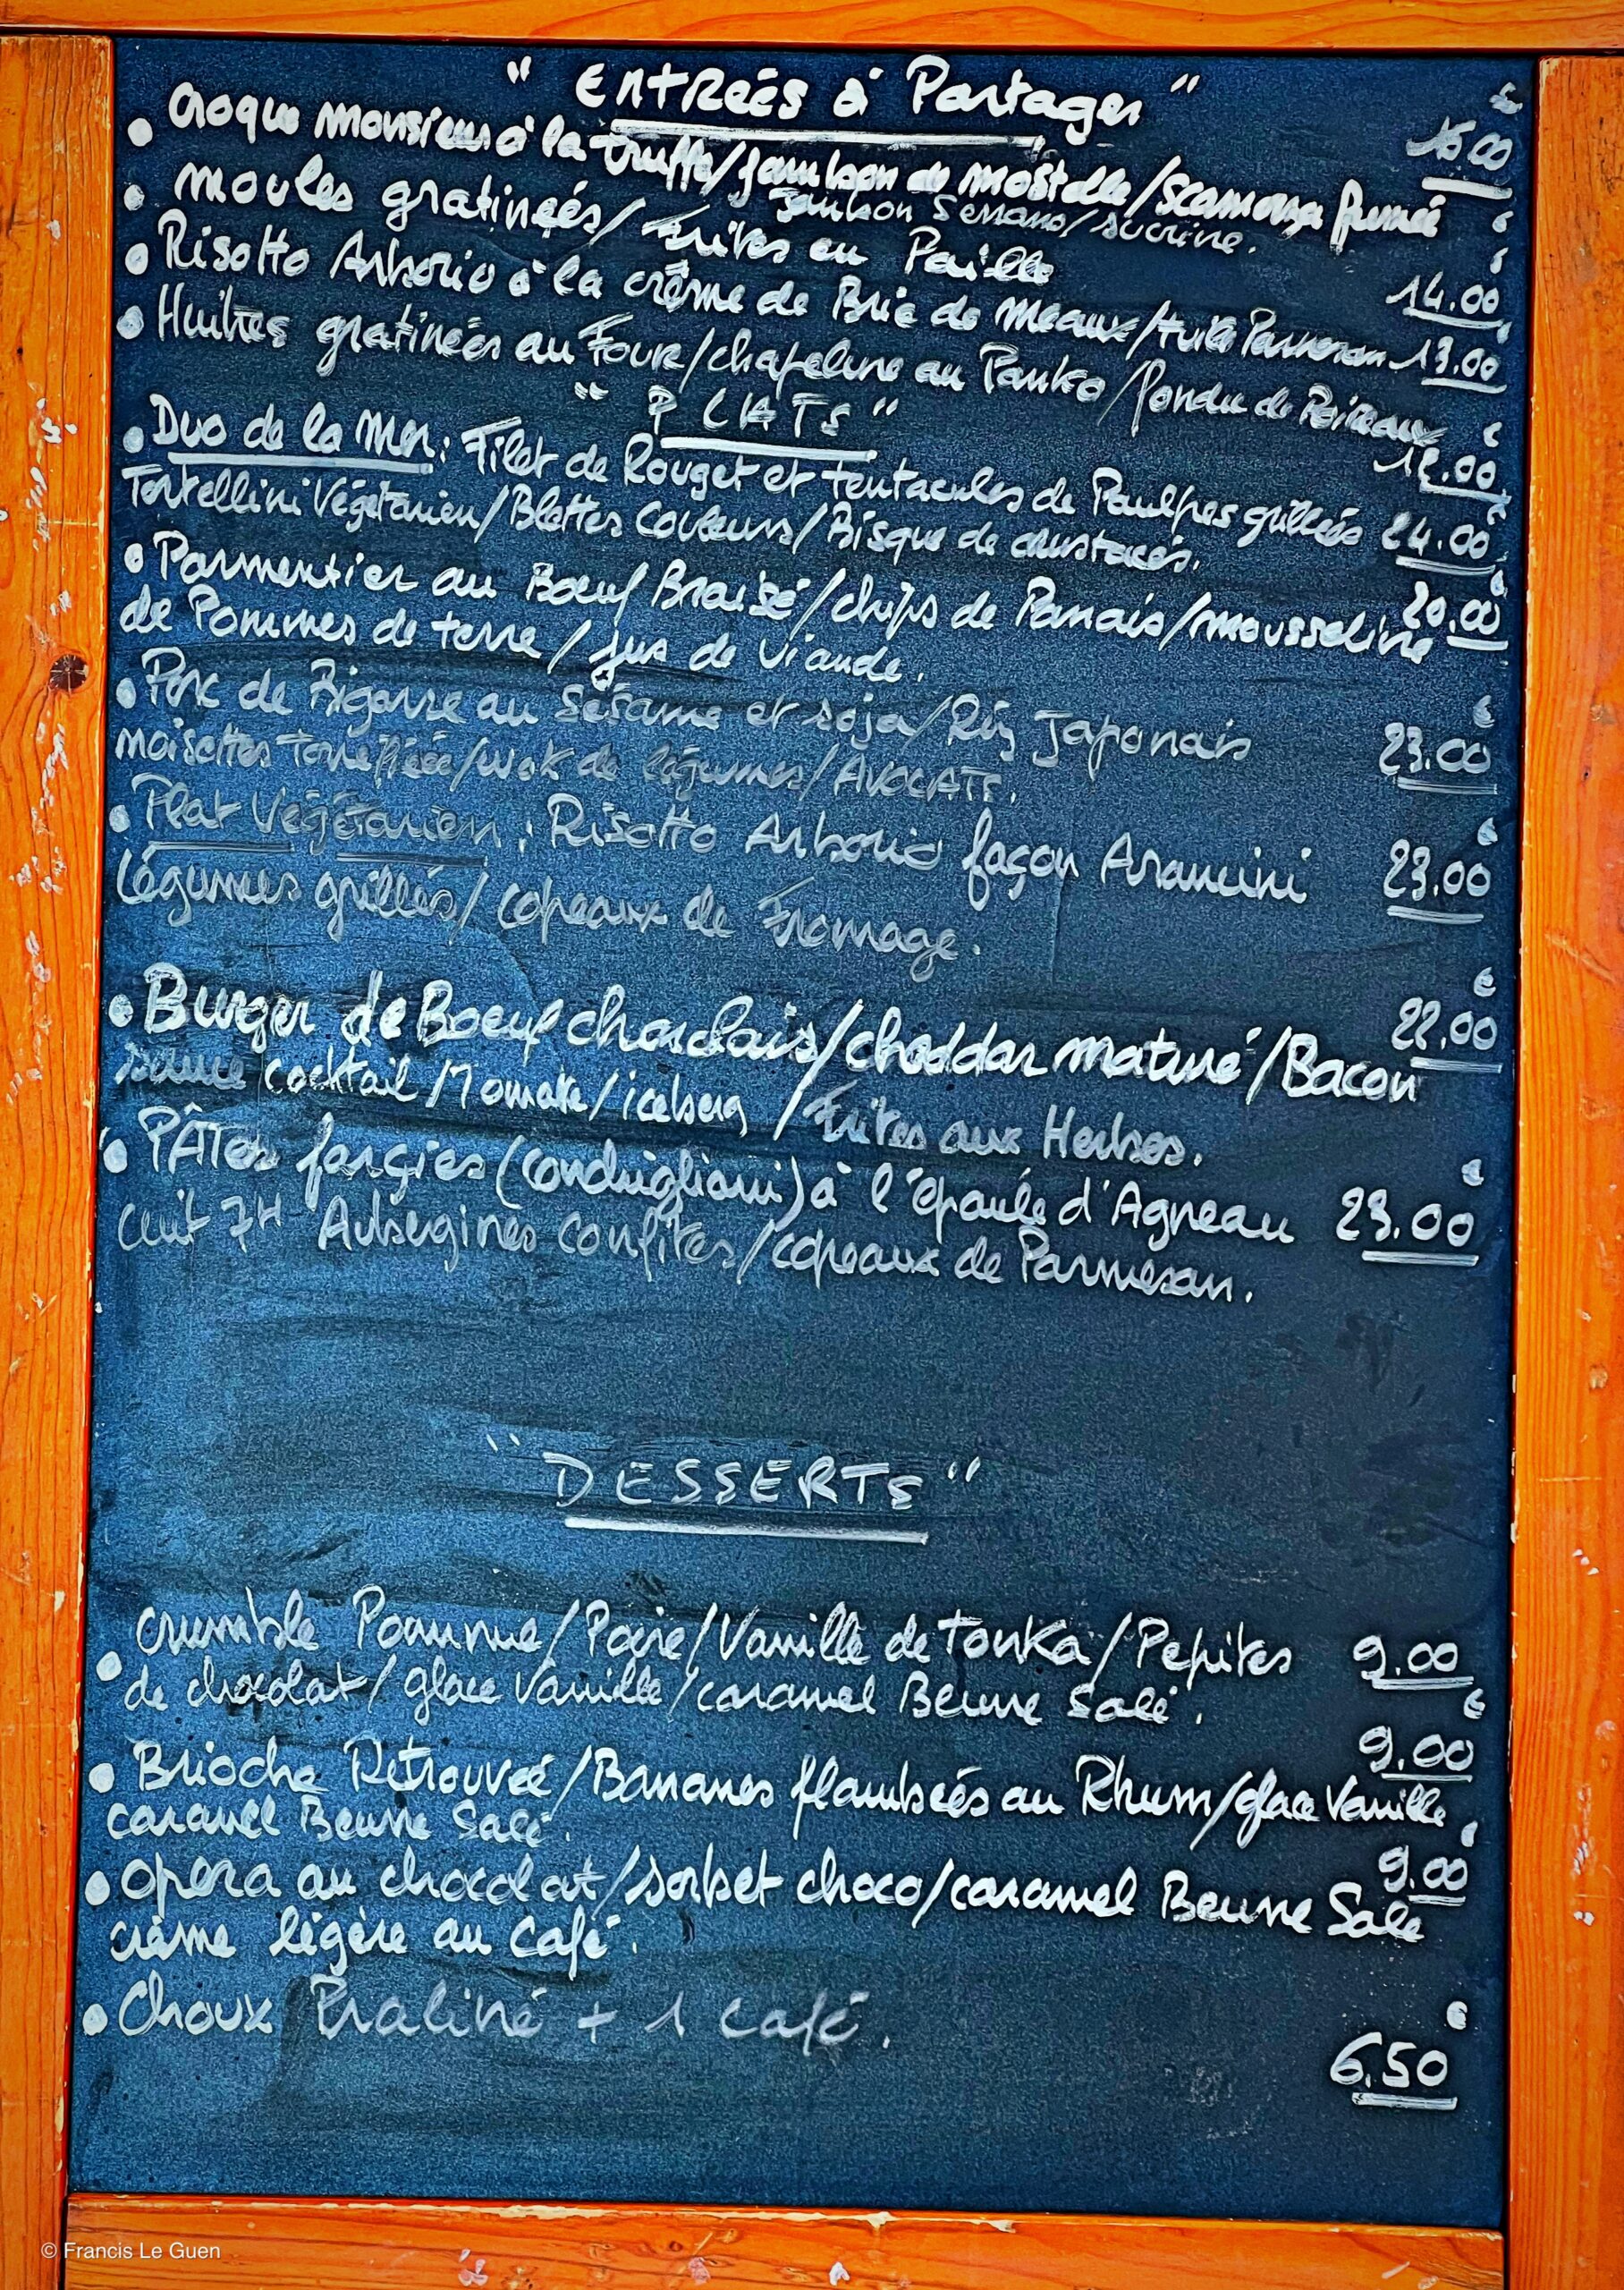 " ENTREÉS à Partager "
€
• Croque monsieur à la truffe/jambon de /scamorza fumée 15.00
Jambon Serrano/sucrine.
• moules gratineés/Frites en Paille 14.00
• Risotto Arborio à la crême de Brie de meaux/tuile Parmesan 13.00
• Huitres gratineés au Four/chapelure au Panko/fondue de Poireaux
" PLATS " €
12.00
• Duo de la Mer: Filet de Rouget et tentacules de Poulpes grilleés 24.00
Tortellini Végétarien/Blettes Couleurs/Bisque de crustacés.
• Parmentier au Boeuf Braisé/chips de Panais/mousseline 20.00
de Pommes de terre/jus de viande.
• Porc de Bigorre au Sésame et soja/Riz Japonais 23.00
noisettes torrefiéé/wok de légumes/AVOCATS.
• Plat Végétarien: Risotto Arborio façon Arancini 23.00
Légumes grillés/copeaux de Fromage.
€
• Burger de Boeuf charolais/cheddar maturé/Bacon 22.00
sauce cocktail/Tomate/iceberg/Frites aux Herbes.
• PÂTES fargies (conchiglioni) à l'épaule d'Agneau 23.00
cuit 7H Aubergines confites/copeaux de Parmesan.
" DESSERTS "
• crumble Pomme/Poire/Vanille de tonKa/Pepites 9.00
de chocolat/glace Vanille/caramel Beurre salé.
€
9.00
• Brioche Retrouvéé/Bananes flambeés au Rhum/glace Vanille
caramel Beurre Salé.
• opera au chocolat/sorbet choco/caramel Beurre Salé 9.00
crème légère au café.
• Choux Praliné + 1 café.
€
6.50
© Francis Le Guen